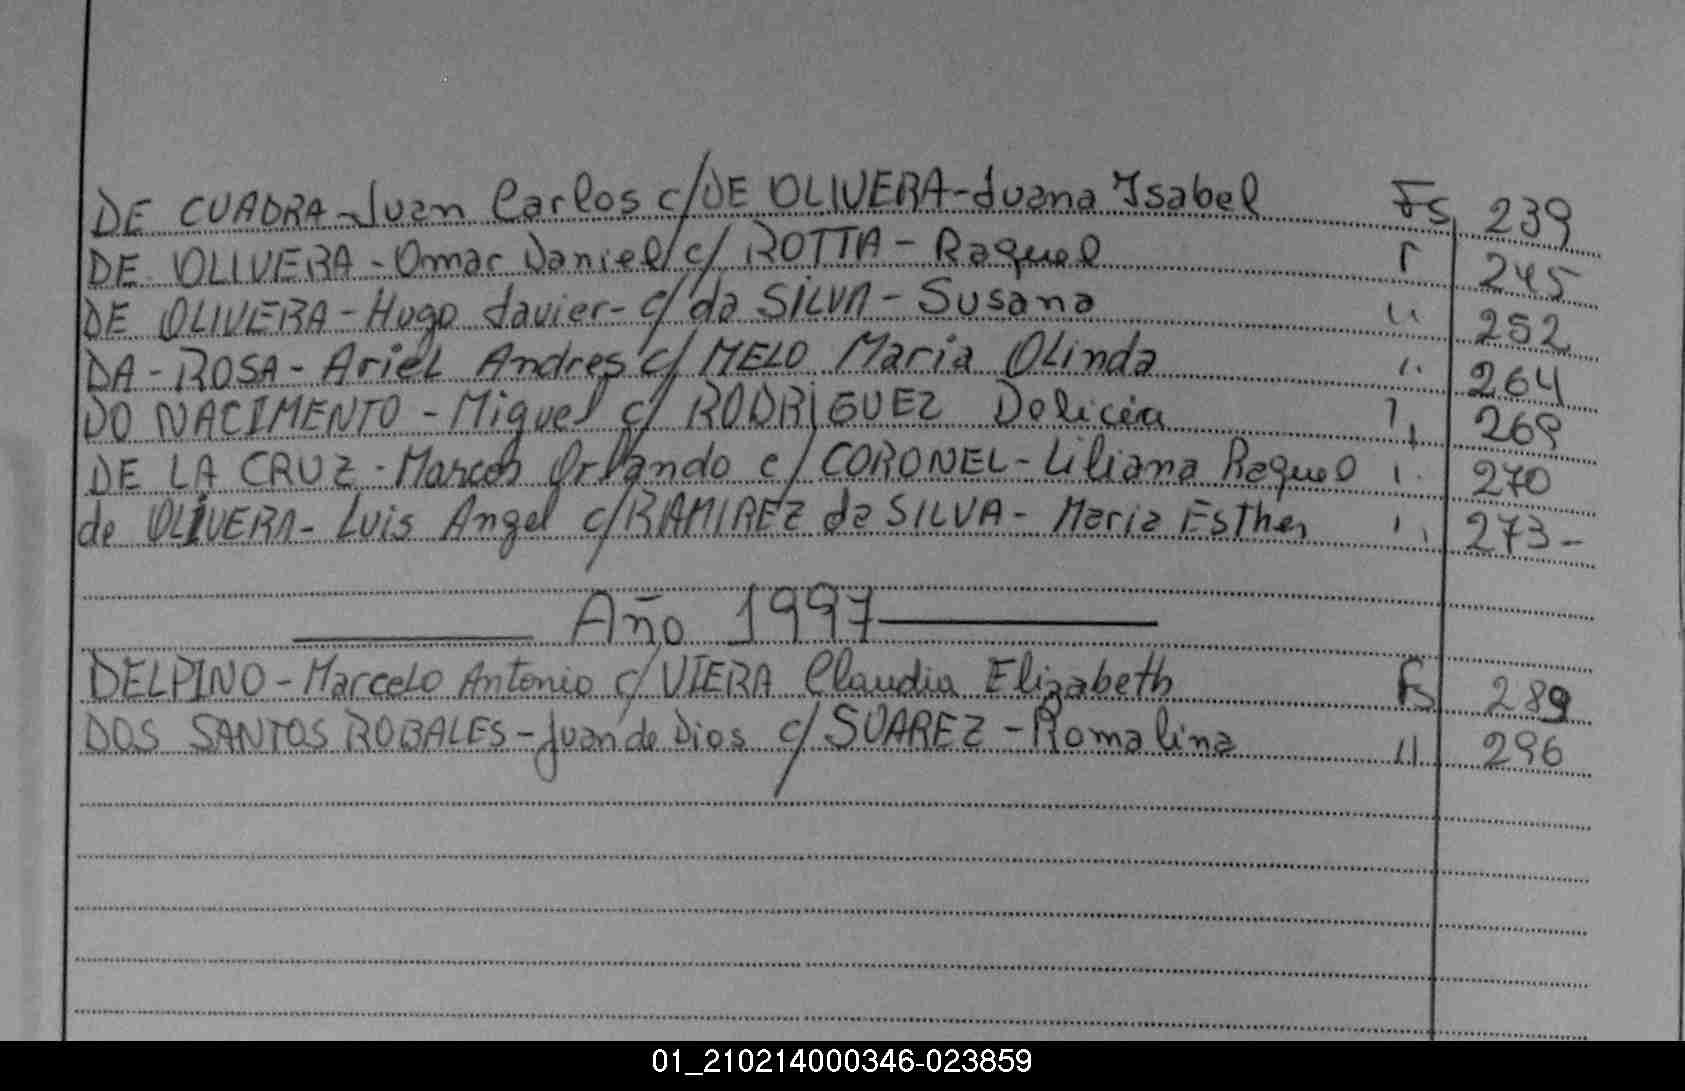 DE CUADRA-Juan Carlos c/DE OLIVERA-Juana Ysabel Fs 239
DE OLIVERA-Omar Daniel c/ ROTTA-Raquel " 245
DE OLIVERA-Hugo Javier-c/ da SILVA-Susana " 252
DA-ROSA-Ariel Andres c/ MELO Maria Olinda " 264
DO NACIMENTO-Miguel c/ RODRIGUEZ Delicia " 269
DE LA CRUZ-Marcos Orlando c/ CORONEL-Liliana Raquel " 270
de OLIVERA-Luis Angel c/RAMIREZ da SILVA-Maria Esther " 273-
Año 1997
DELPINO-Marcelo Antonio c/ VIERA Claudia Elizabeth Fs 289
DOS SANTOS ROBALES-Juan de Dios c/ SUAREZ-Romalina " 296
01_210214000346-023859